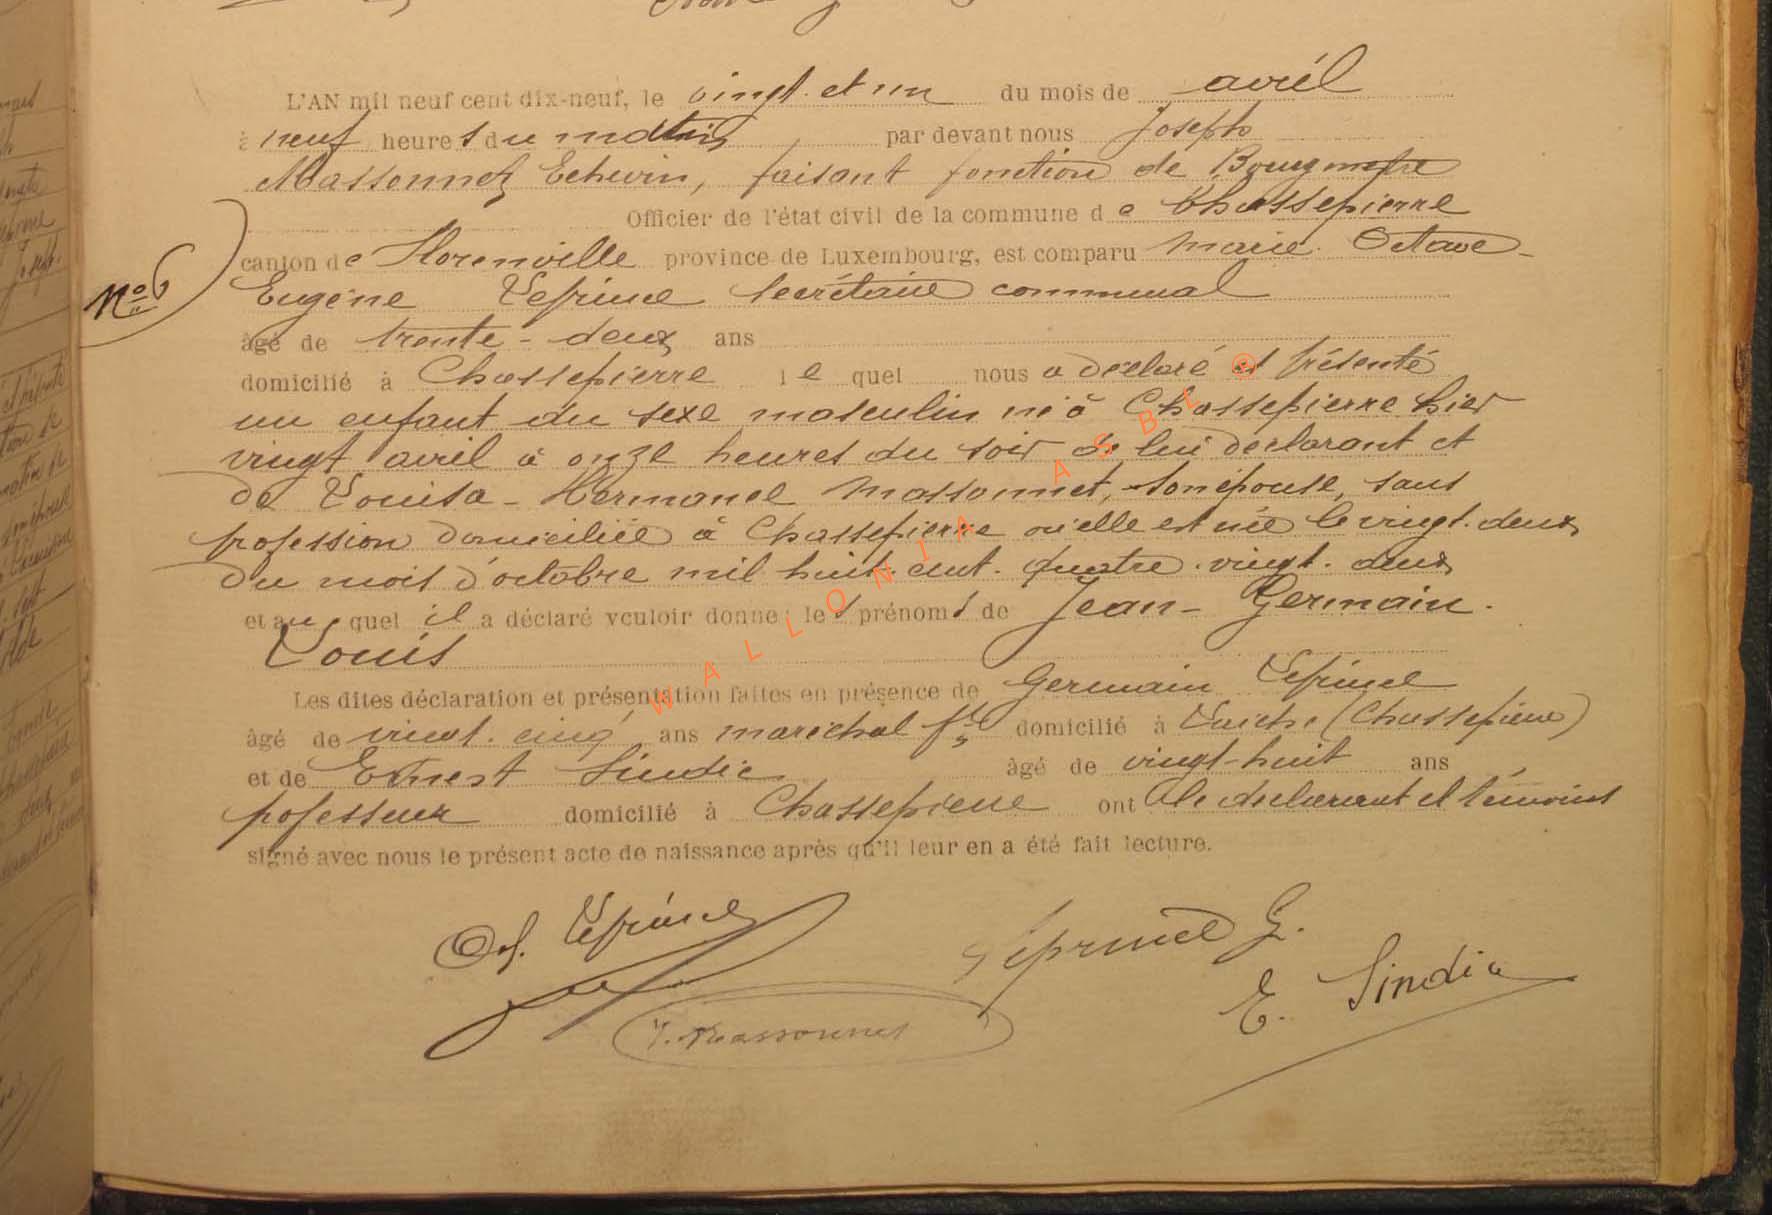 L'AN mil neuf cent dix-neuf, le vingt et un du mois de avril
à neuf heures du matin par devant nous Joseph
Massonnet, Echevin, faisant fonction de Bourgmestre
Officier de l'état civil de la commune de Chassepierre
canton de Florenville province de Luxembourg, est comparu Marie Octave
N° 6
Eugène Leprince secrétaire communal
âgé de trente-deux ans
domicilié à Chassepierre le quel nous a déclaré et présenté
un enfant du sexe masculin né à Chassepierre hier
vingt avril à onze heures du soir de lui déclarant et
de Louisa-Hermance Massonnet, son épouse, sans
profession domiciliée à Chassepierre où elle est née le vingt-deux
du mois d'octobre mil huit cent quatre-vingt-deux
et au quel il a déclaré vouloir donner les prénoms de Jean-Germain-
Louis
Les dites déclaration et présentation faites en présence de Germain Leprince
âgé de vingt-cinq ans maréchal domicilié à Laiche (Chassepierre)
et de Ernest Sindic âgé de vingt-huit ans
professeur domicilié à Chassepierre ont le déclarant et témoins
signé avec nous le présent acte de naissance après qu'il leur en a été fait lecture.
Leprince
Leprince G.
E. Sindic
J. Massonnet
WALLONIA ASBL ®